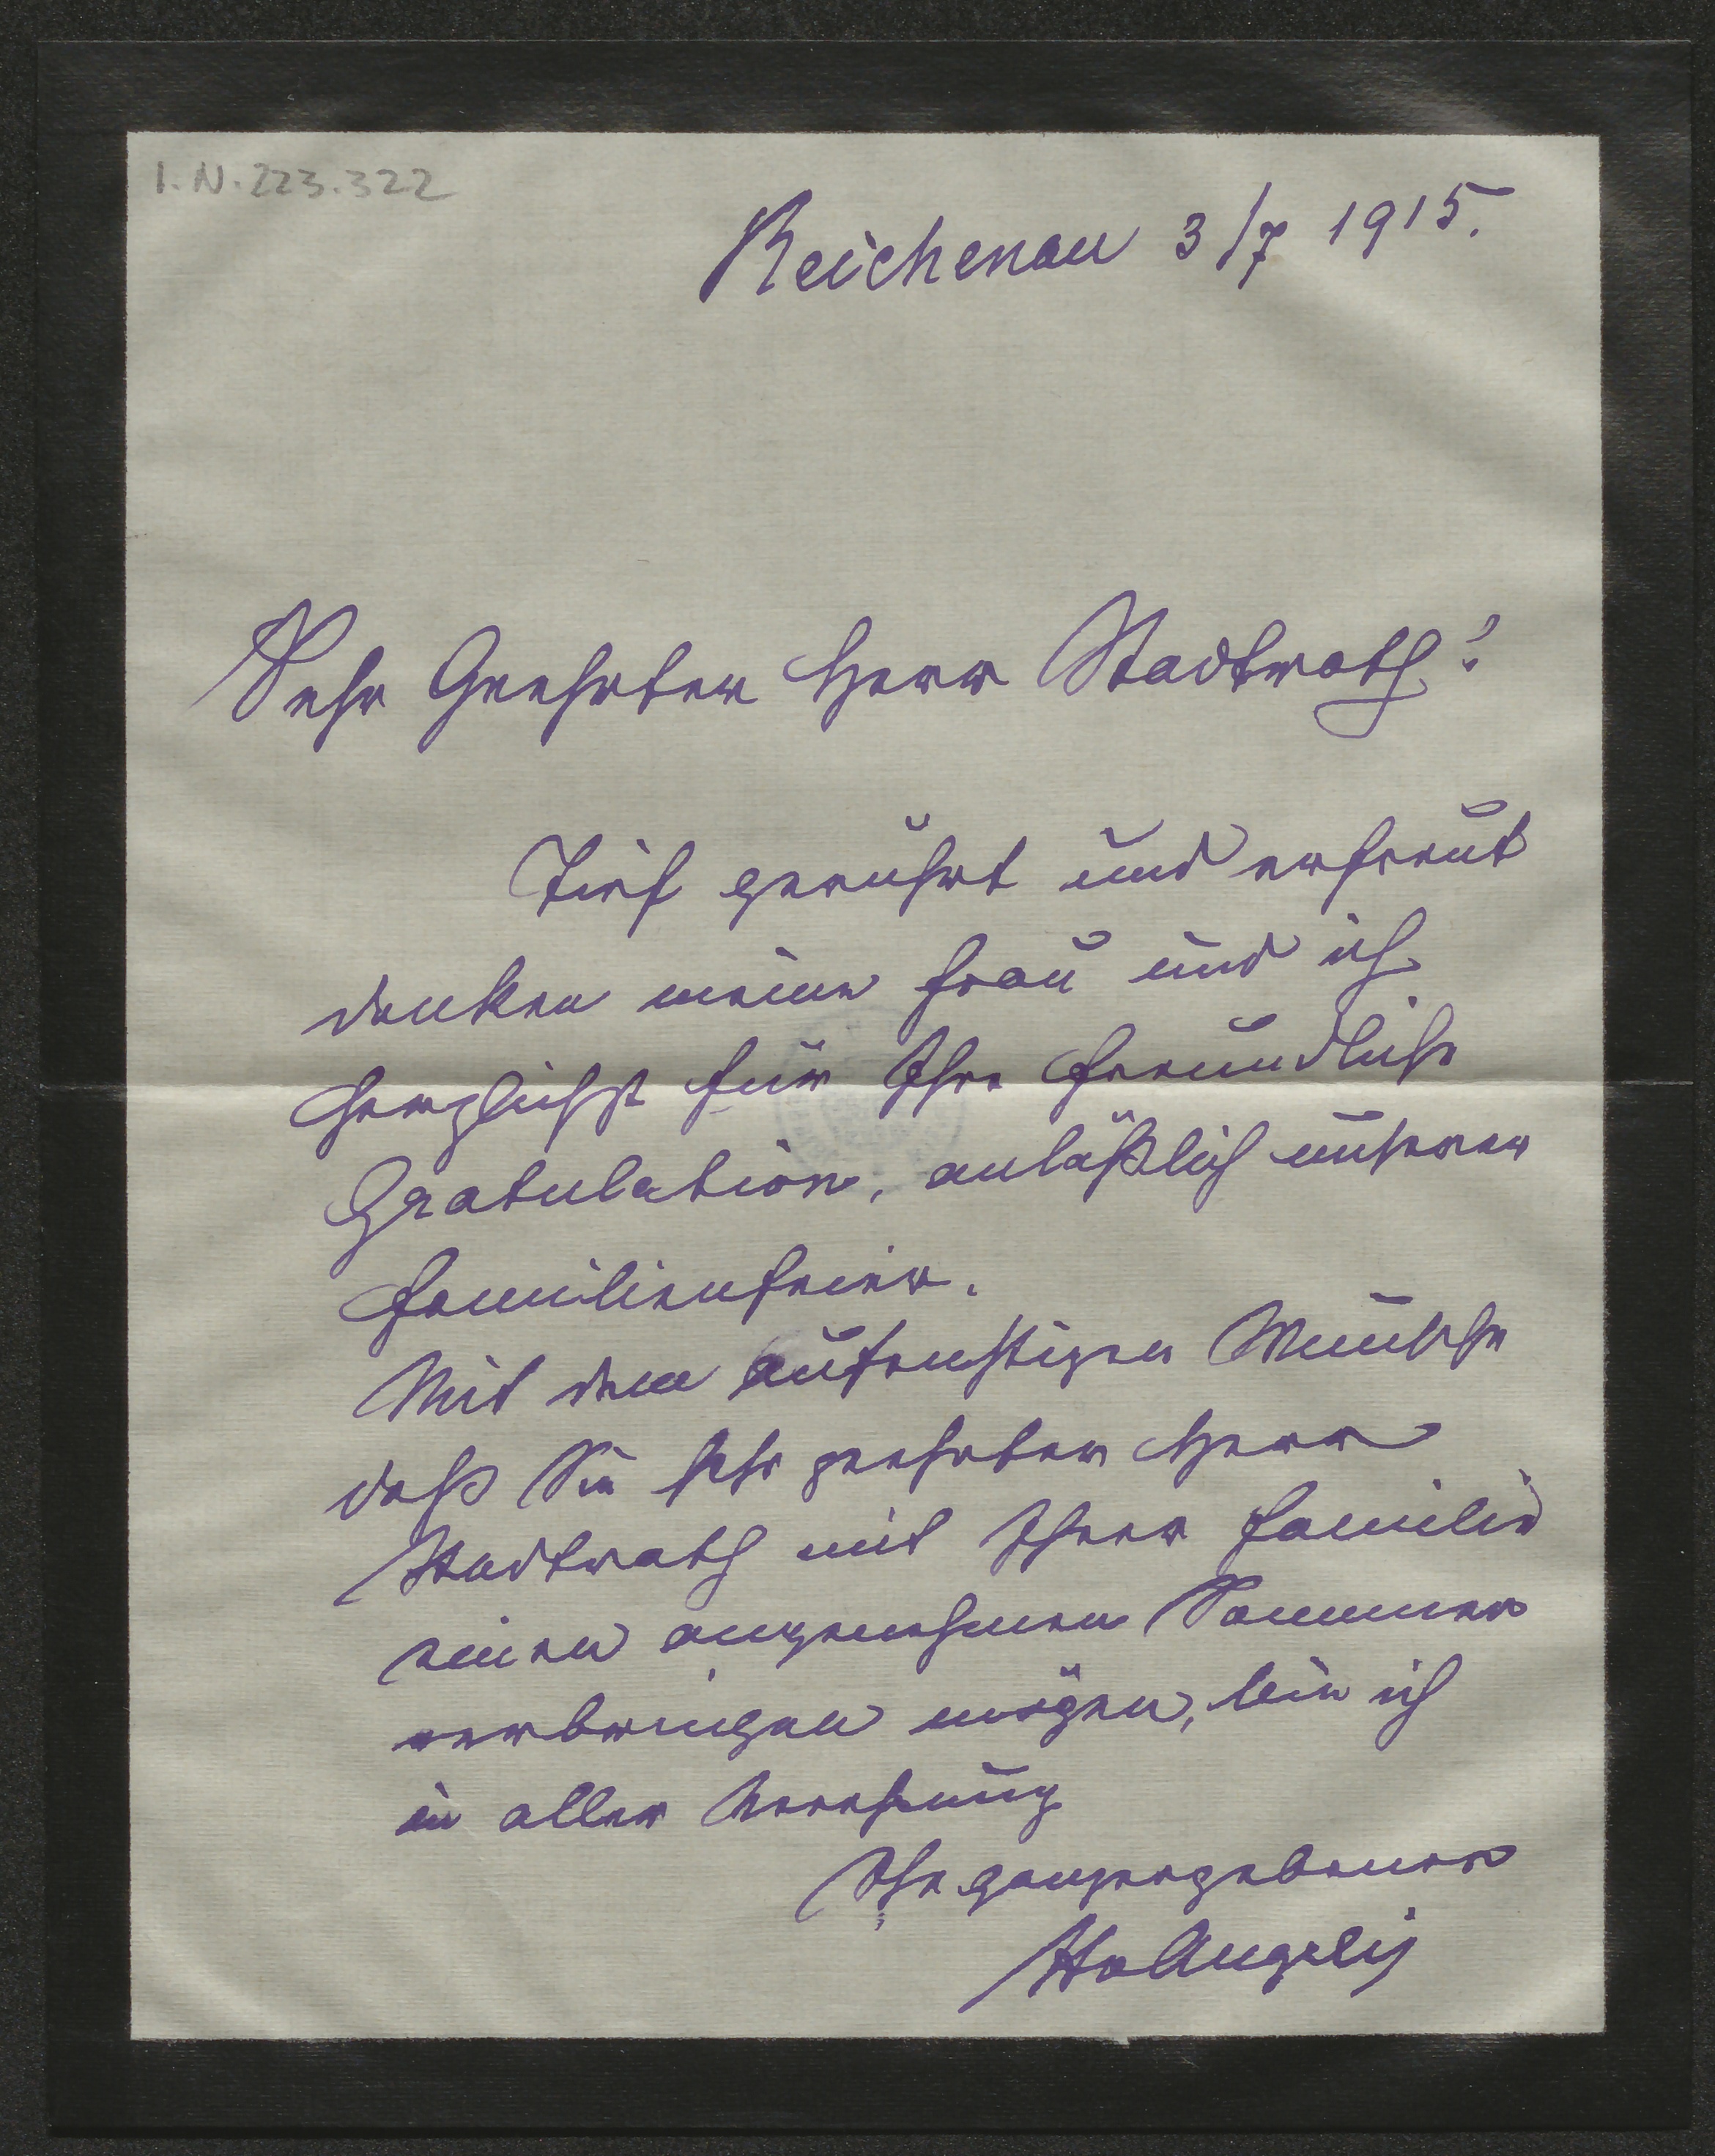 I.N. 223.322
Reichenau 3/7 1915.
Sehr Geehrter Herr Stadtrath!
Tief gerührt und erfreut
danken meine Frau und ich
herzlichst für Ihre freundliche
Gratulation, anläßlich unserer
Familienfeier.
Mit dem aufrichtigen Wunsche
daß Sie sehr geehrter Herr
Stadtrath mit Ihrer Familie
einen angenehmen Sommer
verbringen mögen, bin ich
in aller Verehrung
Ihr ganz ergebener
HvAngeli